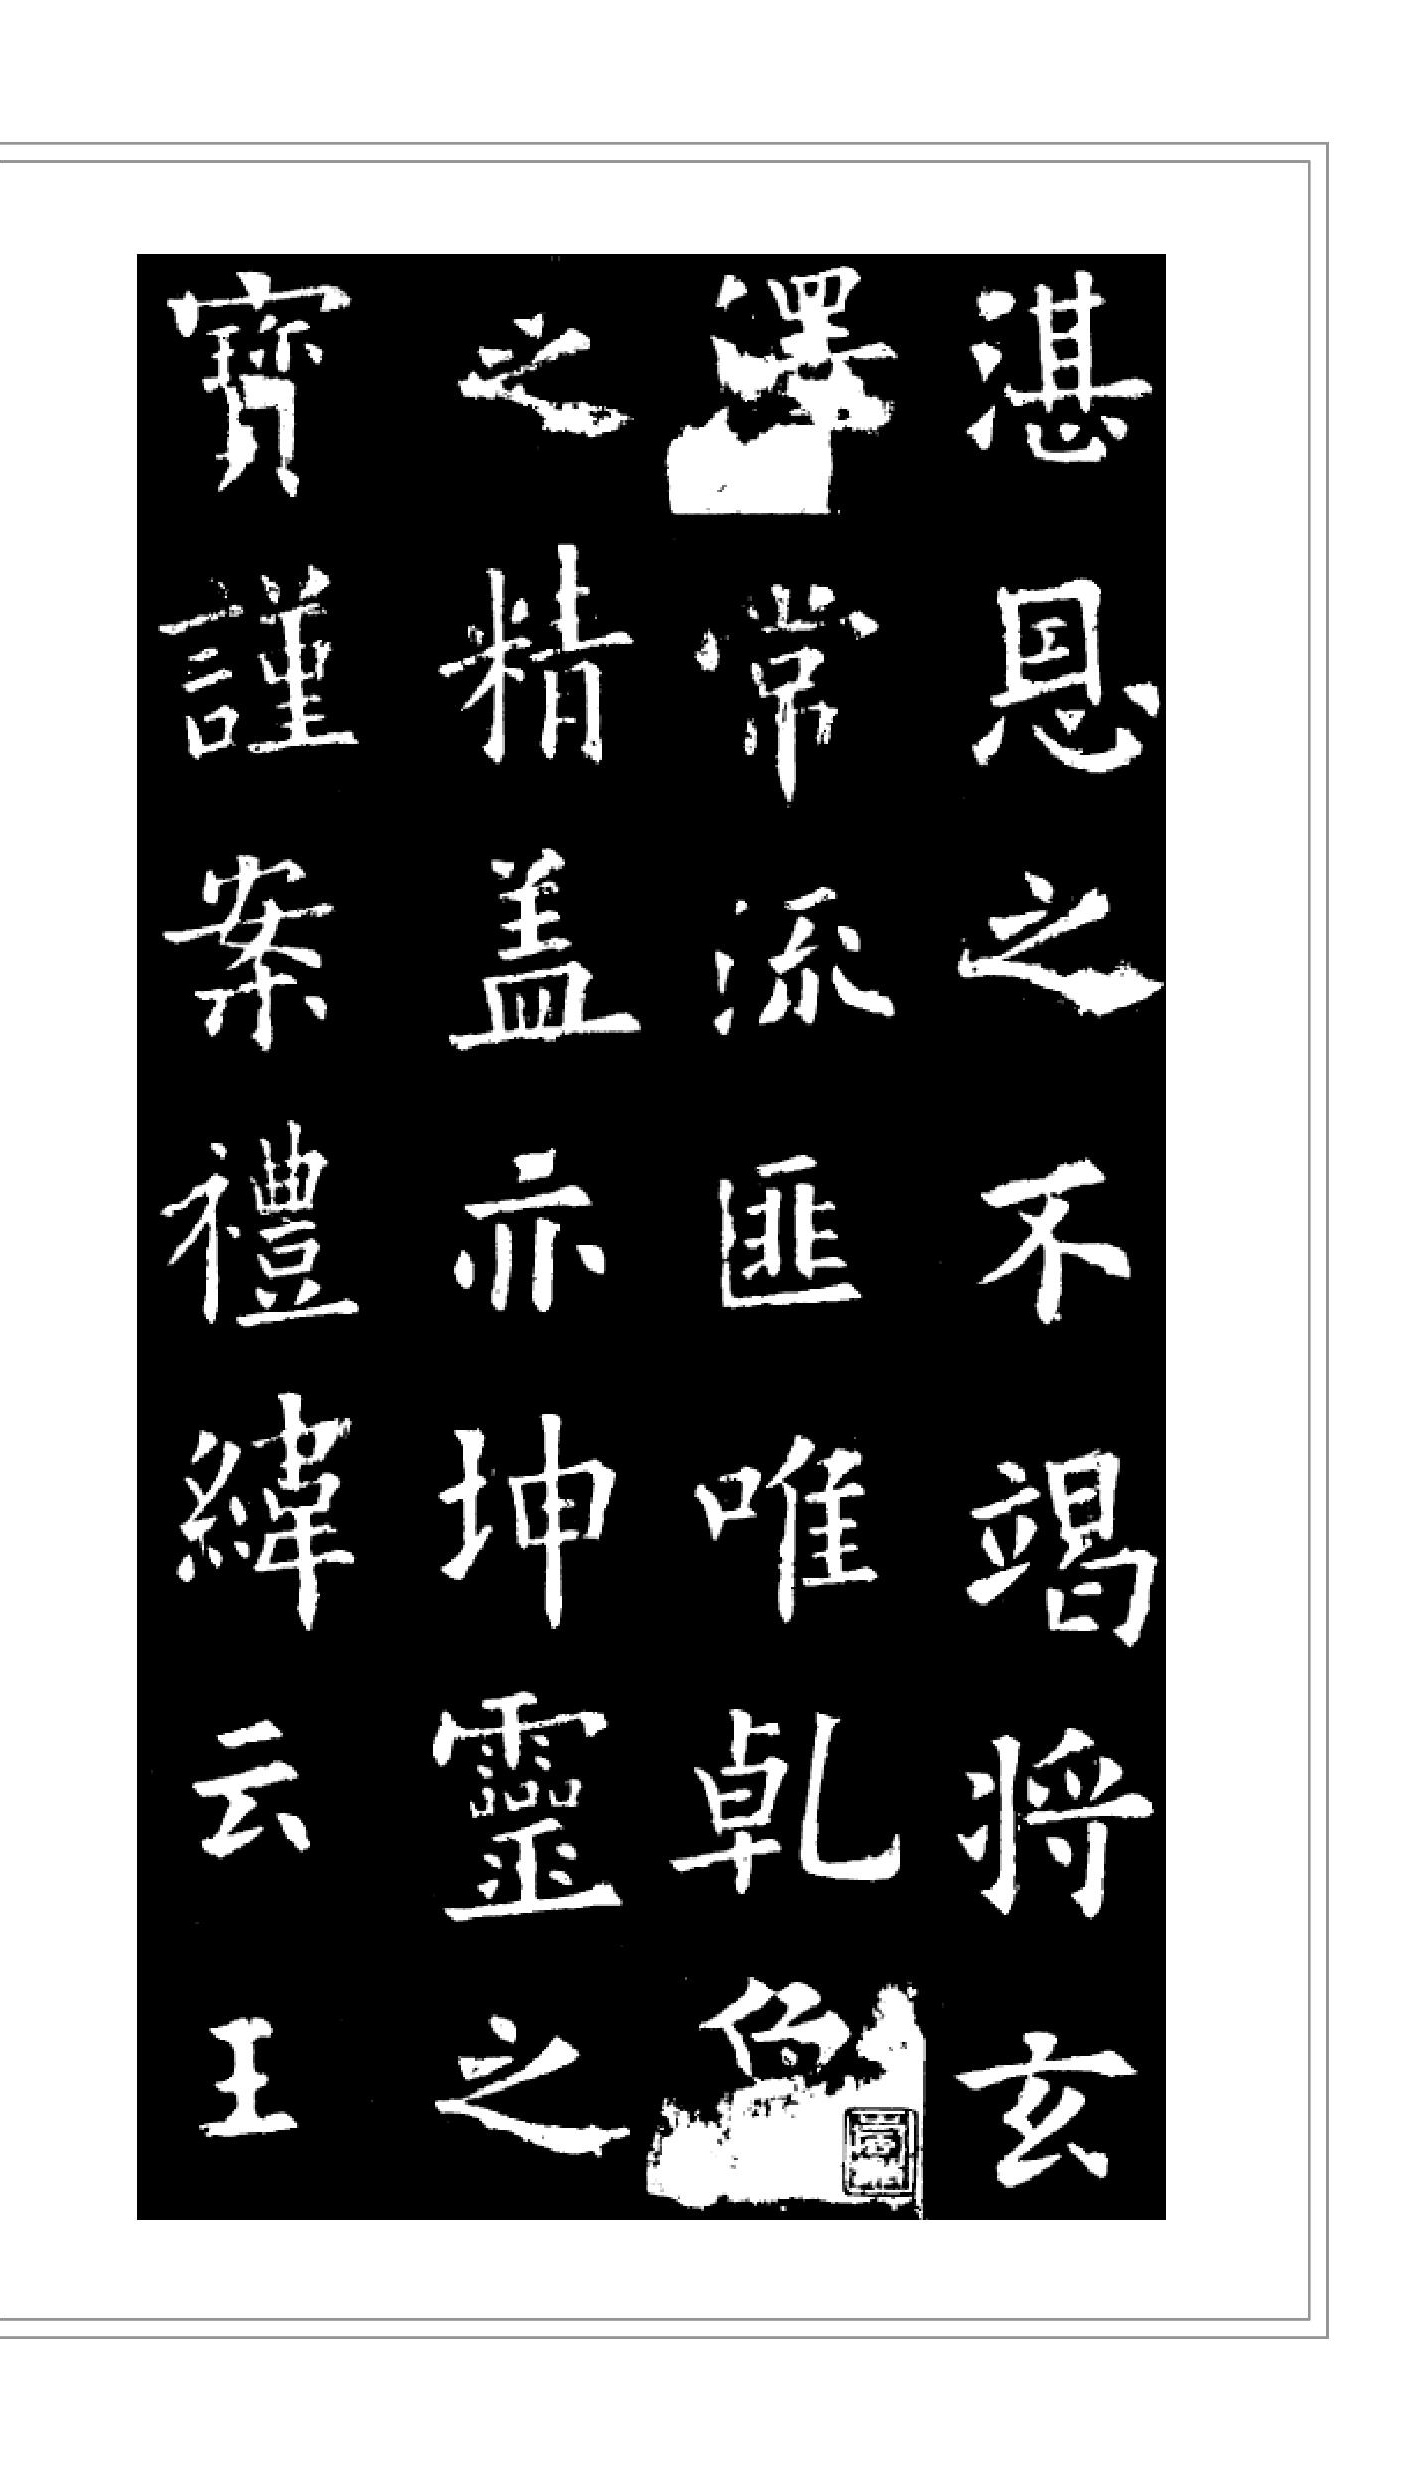 湛恩之不竭将玄
澤常流匪唯乹象
之精盖亦坤靈之
寶謹案禮緯云王